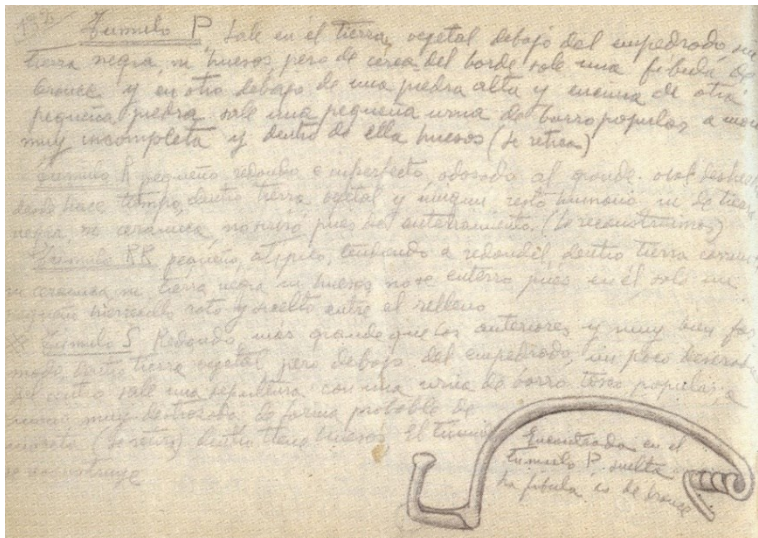 Tumulo P. Sale en él tierra vegetal debajo del empedrado, sin
tierra negra, ni huesos, pero de cerca del borde sale una fibula de
bronce y en otro debajo de una piedra alta y encima de otra
pequeña piedra sale una pequeña urna de barro popular a mano
muy incompleta y dentro de ella huesos (se retira)
Tumulo R pequeño, redondo e imperfecto, adosado al grande
hace tiempo, dentro tierra vegetal y ningun resto humano ni de tierra
negra, ni ceramica, pues enterramiento. (Lo reconstruimos)
Tumulo RR pequeño, tendiendo a redondel, dentro tierra
ni ceramica, ni tierra negra ni huesos no se enterro pues en él, sale un
roto y suelto entre el relleno
Tumulo S Redondo, mas grande que los anteriores y muy bien
dentro tierra vegetal pero debajo del empedrado, un poco
centro sale una sepultura con una urna de barro tosco popular, a
mano muy destrozada de forma probable de
(se retira) dentro tiene huesos. El tumulo
se reconstruye
Encontrada en el
tumulo P. suelta
la fibula es de bronce